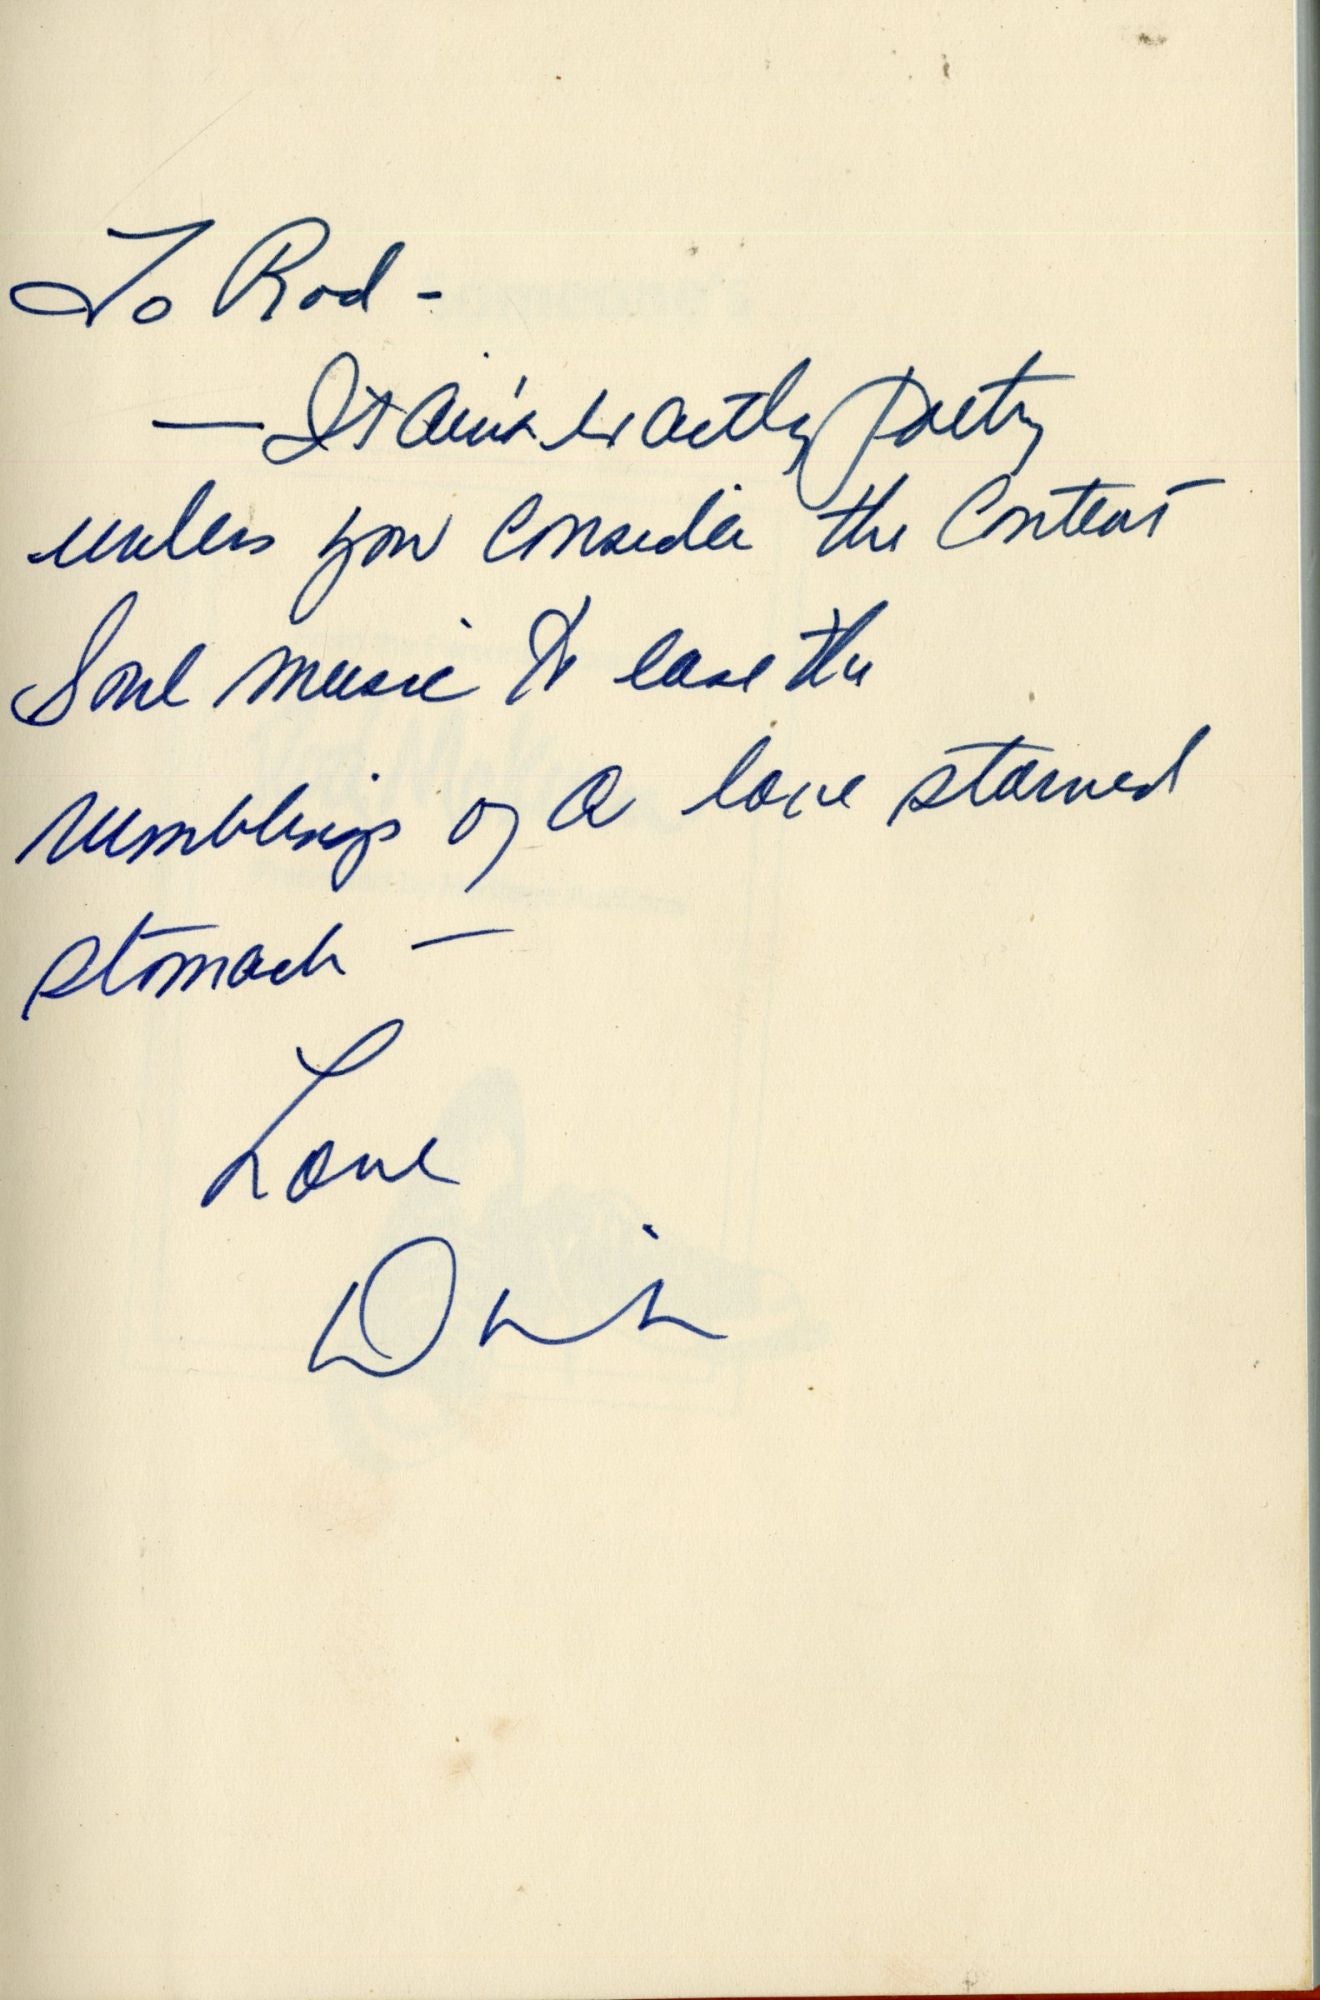 To Rod -
— It ain't exactly Poetry
unless you consider the Content
Soul music to ease the
rumblings of a love starved
stomach —
Love